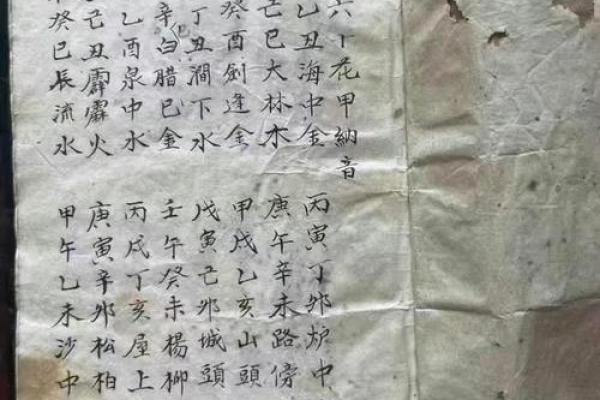 六十花甲納音
乙丑海中金
丙寅丁卯炉中
己巳大林木
庚午辛未路傍
癸酉劍逢金
甲戌乙亥山頭
丁丑澗下水
戊寅己卯城頭
辛白腊巳金
壬午癸未楊柳
乙酉泉中水
丙戌丁亥屋上
己丑霹靂火
庚寅辛卯松柏
癸巳辰流水
甲午乙未沙中